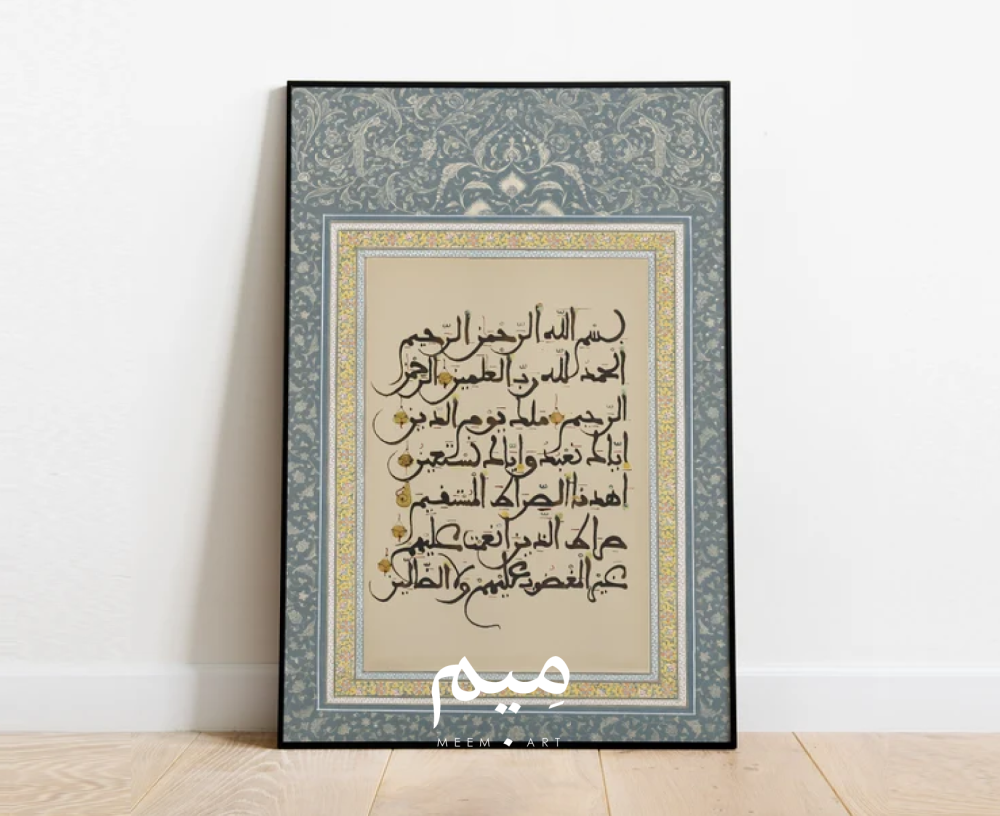 بسم الله الرحمن الرحيم
الحمد لله رب العلمين الرحمن
الرحيم ملك يوم الدين
إياك نعبد وإياك نستعين
اهدنا الصراط المستقيم
صراط الذين أنعمت عليهم
غير المغضوب عليهم ولا الضالين
ميم
MEEM ART